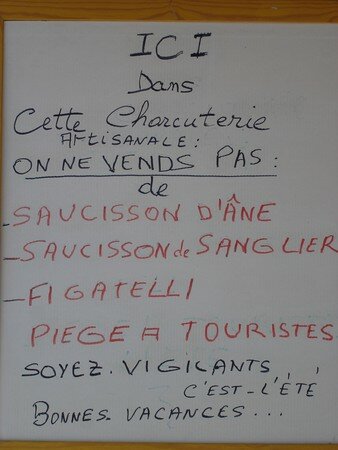 ICI
Dans
Cette Charcuterie
ARTISANALE :
ON NE VENDS PAS :
de
- SAUCISSON D'ÂNE
- SAUCISSON de SANGLIER
- FIGATELLI
PIEGE A TOURISTES
SOYEZ. VIGILANTS , ,
C'EST - L'ÉTÉ
BONNES - VACANCES ...